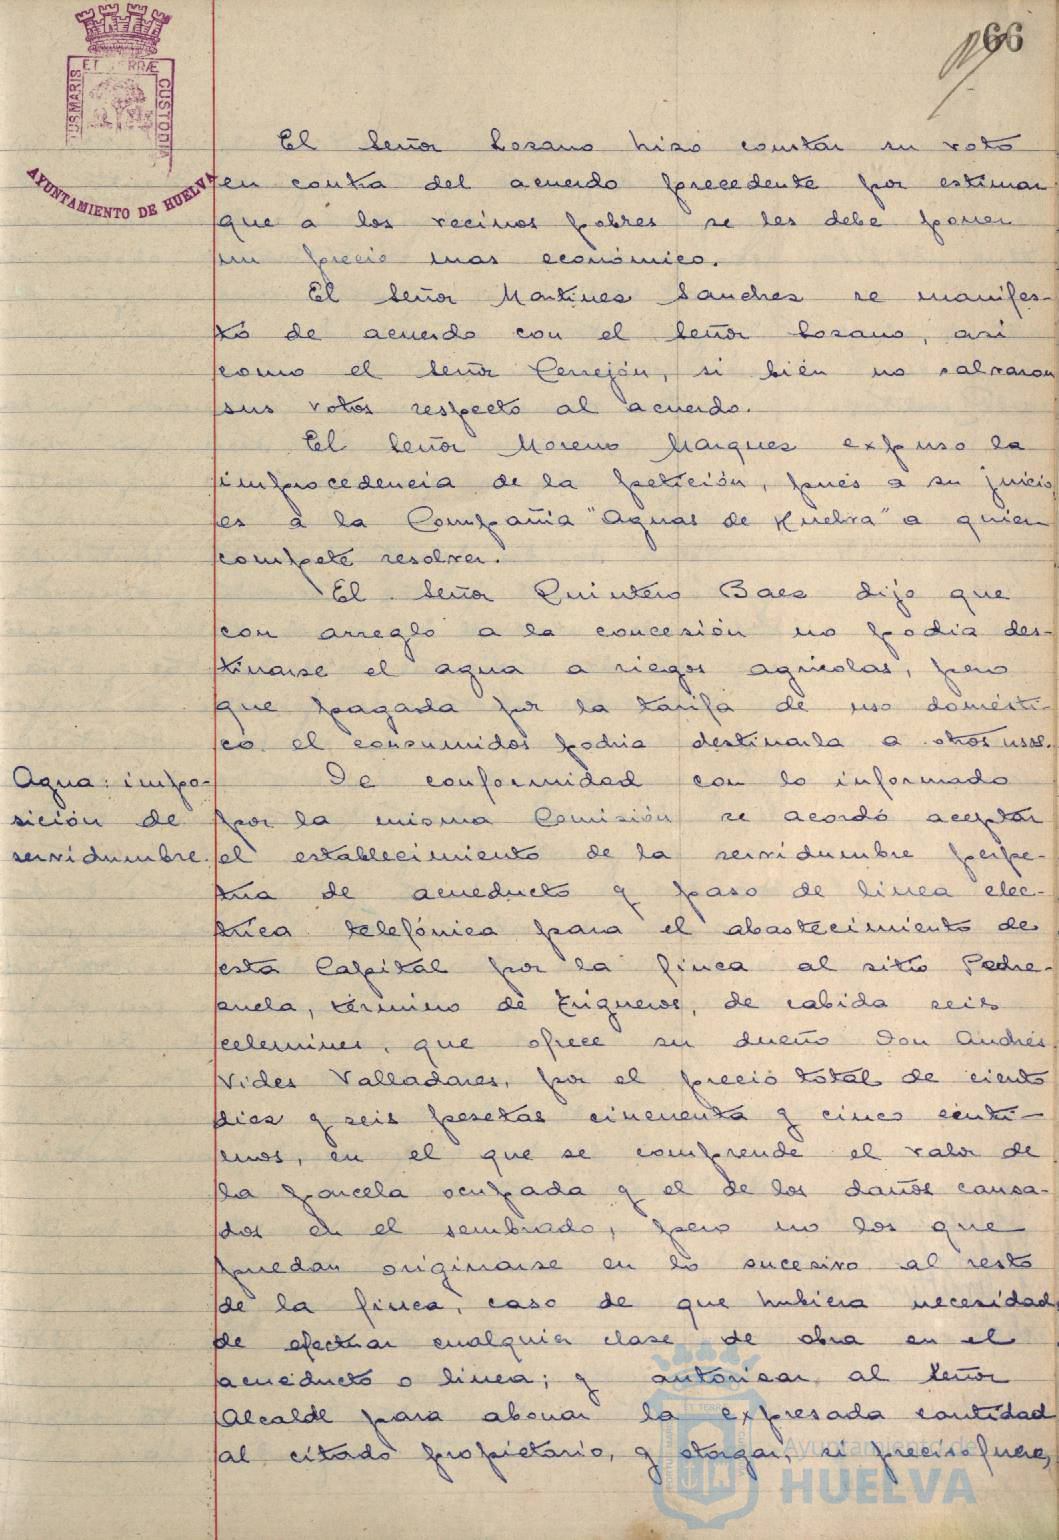 66
PORTUS MARIS ET TERRÆ CUSTODIA
AYUNTAMIENTO DE HUELVA
El Señor Lozano hizo constar su voto
en contra del acuerdo precedente por estimar
que a los vecinos pobres se les debe poner
un precio mas económico.
El Señor Martinez Sanchez se manifes-
tó de acuerdo con el Señor Lozano, asi
como el Señor Cerrejón, si bién no salvaron
sus votos respecto al acuerdo.
El Señor Moreno Marquez expuso la
improcedencia de la petición, pués a su juicio
es a la Compañia "Aguas de Huelva" a quien
compete resolver.
El Señor Quintero Baez dijo que
con arreglo a la concesión no podia des-
tinarse el agua a riegos agricolas, pero
que pagada por la tarifa de uso domésti-
co el consumidos podria destinarla a otros usos.
Agua: impo-
sición de
servidumbre.
De conformidad con lo informado
por la misma Comisión se acordó aceptar
el establecimiento de la servidumbre perpe-
tua de acueducto y paso de linea elec-
trica telefónica para el abastecimiento de
esta Capital por la finca al sitio Pedre-
anela, término de Trigueros, de cabida seis
celemines, que ofrece su dueño Don Andrés
Vides Valladares, por el precio total de ciento
diez y seis pesetas cincuenta y cinco centi-
mos, en el que se comprende el valor de
la parcela ocupada y el de los daños causa-
dos en el sembrado, pero no los que
puedan originarse en lo sucesivo al resto
de la finca, caso de que hubiera necesidad
de efectuar cualquier clase de obra en el
acueducto o linea; y autorizar al Señor
Alcalde para abonar la expresada cantidad
al citado propietario, y otorgar, si preciso fuere,
Ayuntamiento de
HUELVA